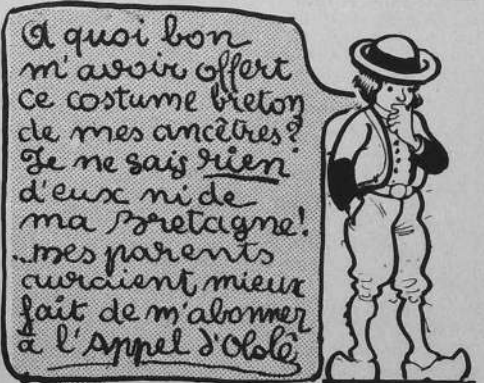 A quoi bon
m'avoir offert
ce costume breton
de mes ancêtres?
Je ne sais rien
d'eux ni de
ma Bretagne!
...mes parents
auraient mieux
fait de m'abonner
à l'Appel d'Ololê